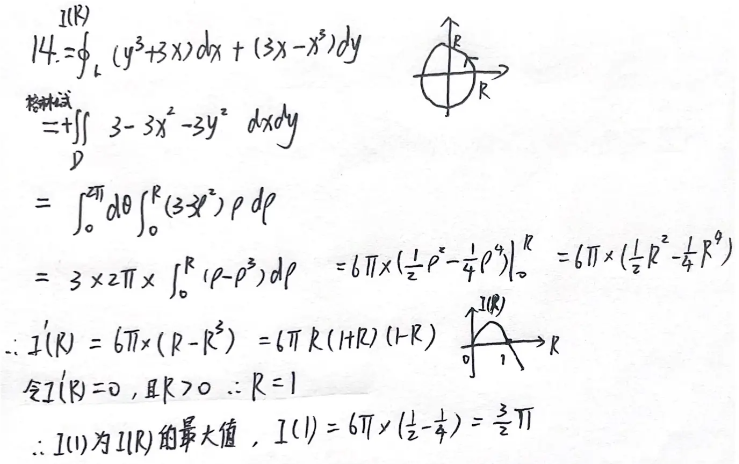 14. I(R) = ∮_L (y³+3x)dx + (3x-x³)dy
格林公式 = +∬_D 3-3x²-3y² dxdy
= ∫₀^{2π} dθ ∫₀^R (3-3ρ²) ρ dρ
= 3×2π× ∫₀^R (ρ-ρ³)dρ = 6π×(½ρ²-¼ρ⁴)|₀^R = 6π×(½R²-¼R⁴)
∴ I'(R) = 6π×(R-R³) = 6πR(1+R)(1-R)
令I'(R)=0, 且R>0 ∴ R=1
∴ I(1)为I(R)的最大值, I(1) = 6π×(½-¼) = 3/2 π
R
R
I'(R)
0 1 R